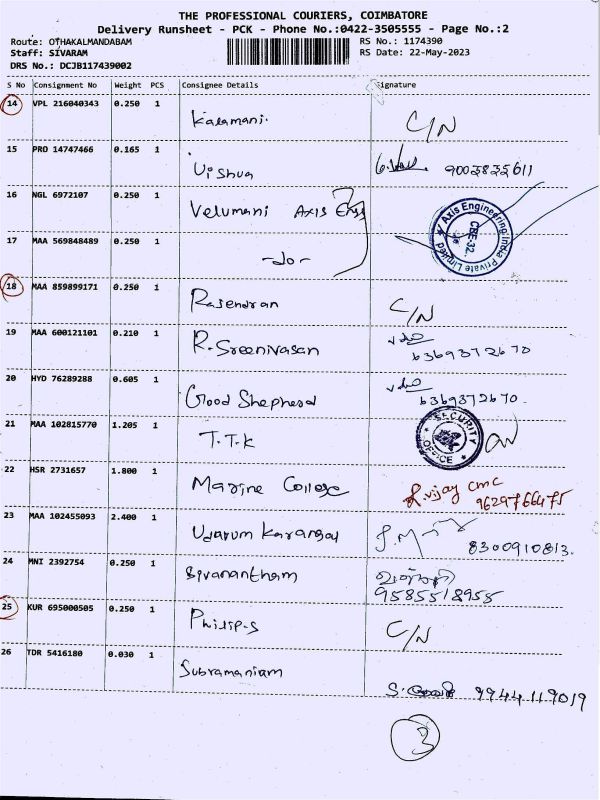 THE PROFESSIONAL COURIERS, COIMBATORE
Delivery Runsheet - PCK - Phone No.:0422-3505555 - Page No.:2
Route: OTHAKALMANDABAM RS No.: 1174390
Staff: SIVARAM RS Date: 22-May-2023
DRS No.: DCJB117439002
S No Consignment No Weight PCS Consignee Details Signature
14 VPL 216040343 0.250 1 Kalamani. C/N
15 PRO 14747466 0.165 1 Vishva
16 NGL 6972107 0.250 1 Velumani Axis Engg
Axis Engineering India Private Limited
CBE-32.
17 MAA 569848489 0.250 1 -do-
18 MAA 859899171 0.250 1 Rajendran C/N
19 MAA 600121101 0.210 1 R. Sreenivasan 6369372670
20 HYD 76289288 0.605 1 Good Shepherd 6369372670.
21 MAA 102815770 1.205 1 T.T.K
SECURITY OFFICE
22 HSR 2731657 1.800 1 Marine College R. vijay cmc
9629766475
23 MAA 102455093 2.400 1 Udavum Karangal 8300910813.
24 MNI 2392754 0.250 1 Sivanantham
9585518958
25 KUR 695000505 0.250 1 Philip-S C/N
26 TDR 5416180 0.030 1 Subramaniam 9944119019
3